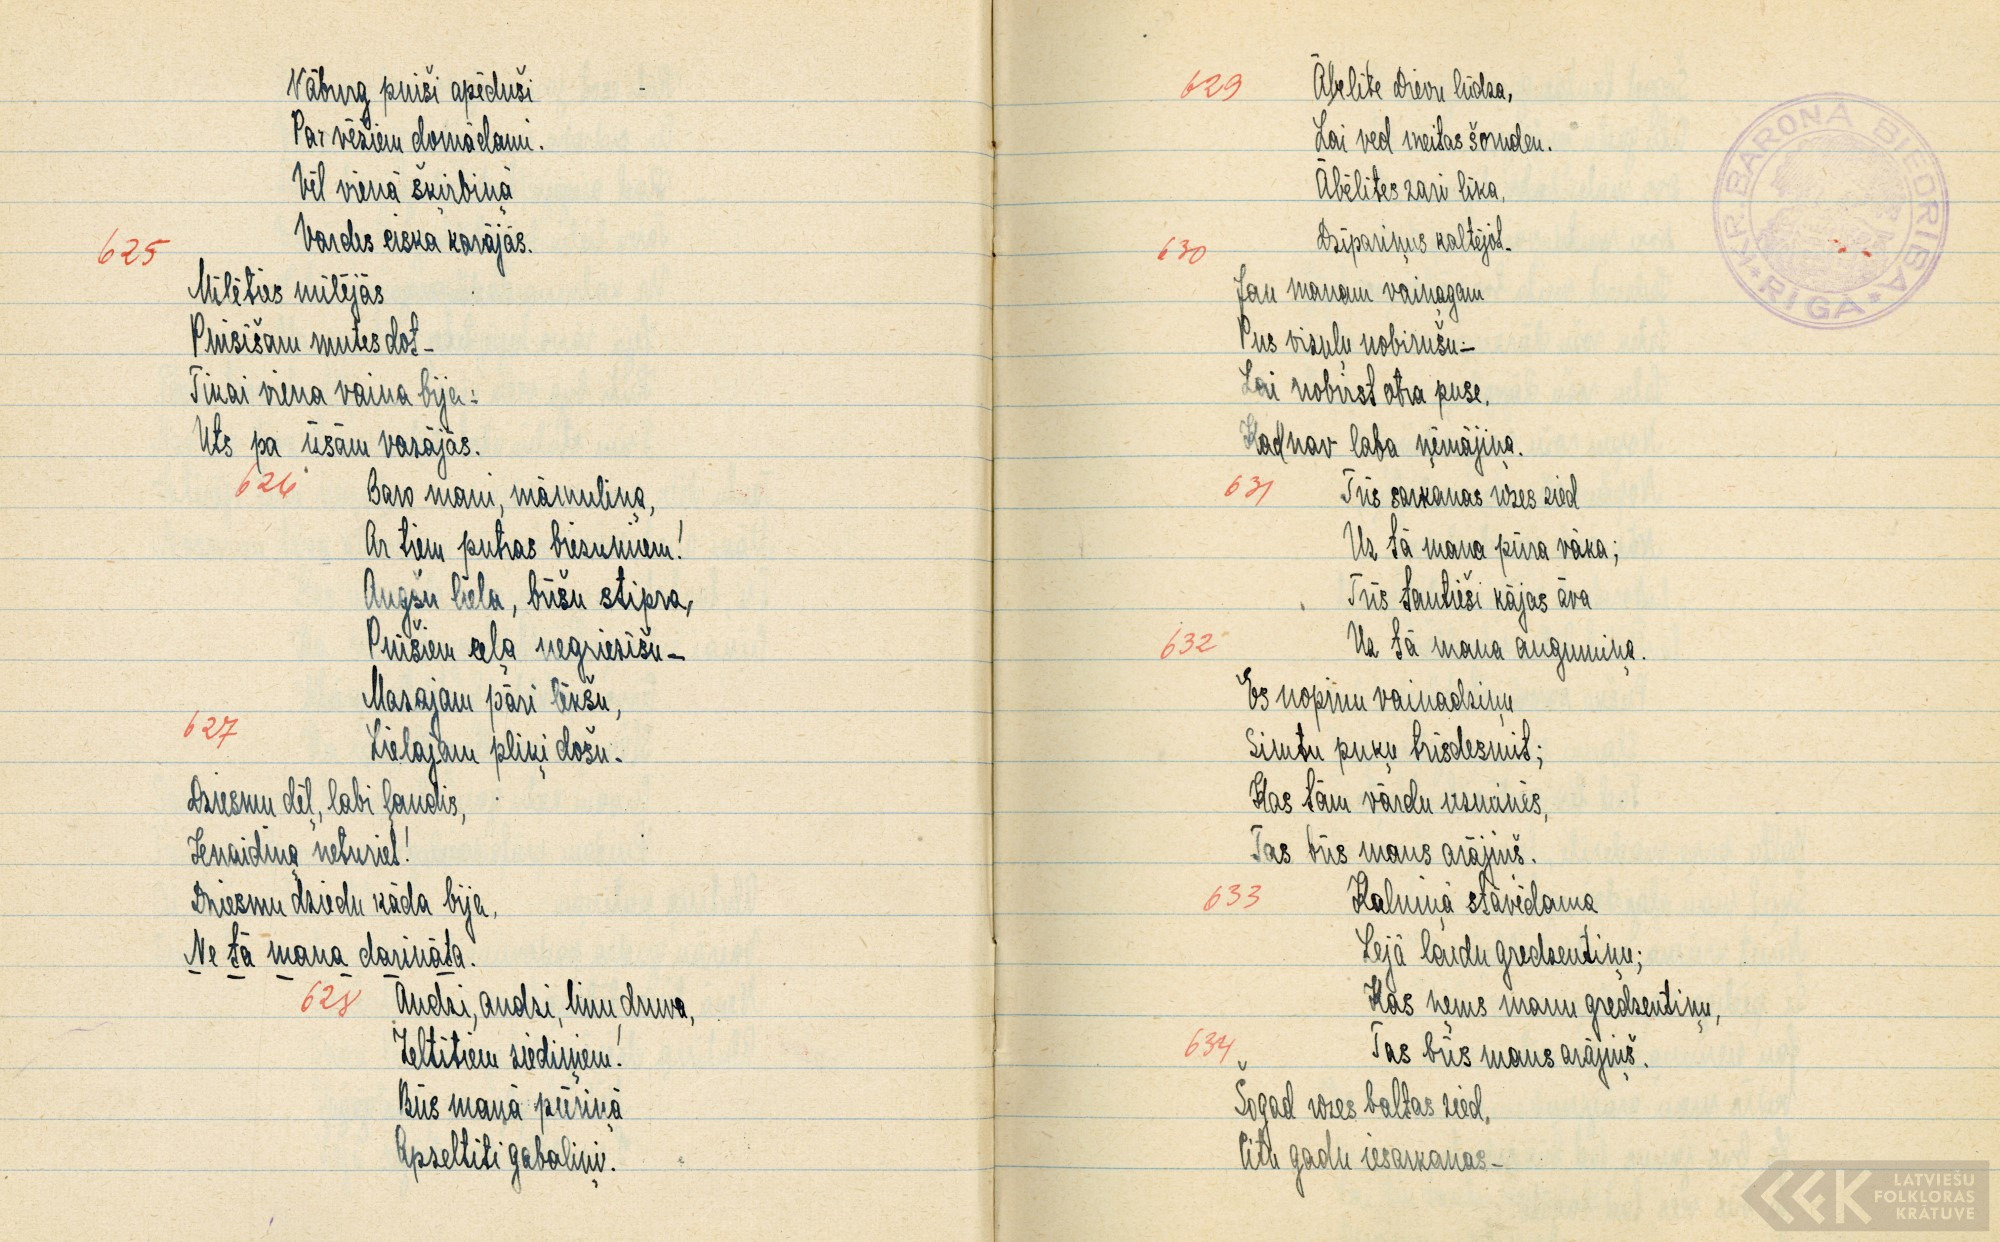 Nāburg puiši apēduši
Par vēžiem domādami.
Vēl vienā šķirbiņā
Vardes ciska karājās.
625
Mīlēties mīlējās
Puisišam mutes dot –
Tikai viena vaina bija:
Uts pa ūsām vazājās.
626
Baro mani, māmuliņa,
Ar tiem putras biezumiem!
Augšu liela, būšu stipra,
Puišiem ceļa negriezīšu –
Mazajam pāri lēkšu,
Lielajam pliķi došu.
627
Dziesmu dēļ, labi ļaudis,
Ienaidiņa neturiet!
Dziesmu dziedu kāda bija,
Ne tā mana darināta.
628
Audzi, audzi, linu druva,
Zeltītiem ziediņiem!
Būs maņā pūriņā
Apzeltīti gabaliņi.
629
Ābelīte Dievu lūdza,
Lai ved meitas šoruden.
Ābelītes zari līka,
Dzīpariņus kaltējot.
630
Jau manam vaiņagam
Pus vizuļu nobirušu –
Lai nobirst otra puse,
Kad nav laba ņēmājiņa.
631
Trīs sarkanas rozes zied
Uz tā mana pūra vāka;
Trīs tautieši kājas āva
Uz tā mana augumiņa.
632
Es nopinu vainadziņu
Simtu puķu trīsdesmit;
Kas tām vārdu uzminēs,
Tas būs mans arājiņš.
633
Kalniņā stāvēdama
Lejā laidu gredzentiņu;
Kas ņems manu gredzentiņu,
Tas būs mans arājiņš.
634
Šogad rozes baltas zied,
Citu gadu iesarkanas –
KR. BARONA BIEDRĪBA * RĪGĀ *
LATVIEŠU
FOLKLORAS
KRĀTUVE